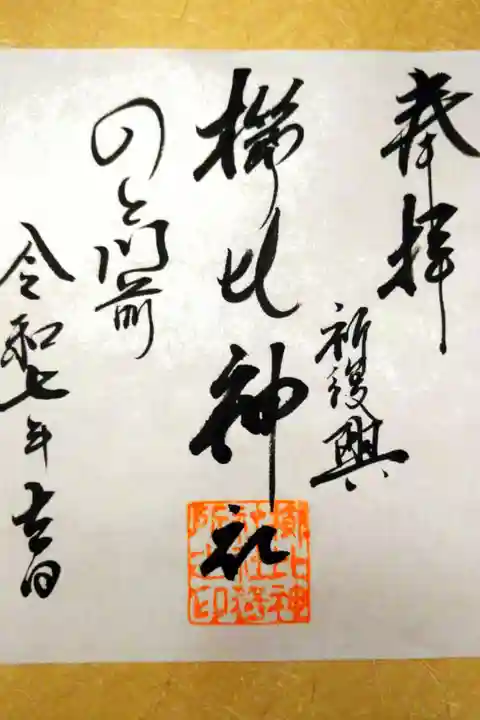 奉拝
祈復興
櫛比神社
のと門前
令和七年吉日